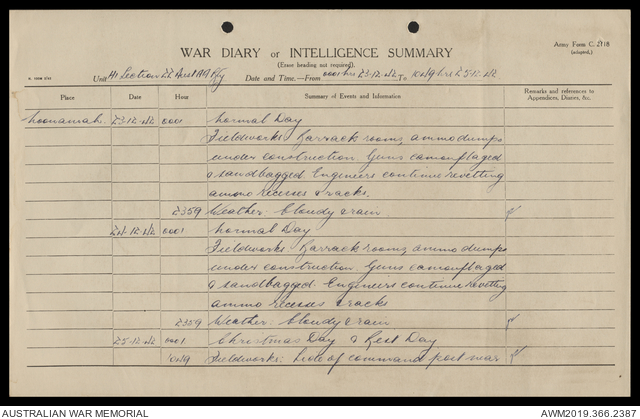 Army Form C. 2118
(adapted.)
WAR DIARY or INTELLIGENCE SUMMARY
(Erase heading not required).
Unit Section 22 Aust Bty Date and Time.—From 0001 hrs 23-12-42 To hrs 25-12-42
Place Date Hour Summary of Events and Information Remarks and references to Appendices, Diaries, &c.
Noonamah. 23-12-42 0001 Normal Day
Fieldworks: Barrack rooms, ammo dumps
under construction. Guns camouflaged
& sandbagged. Engineers continue revetting
ammo recesses & racks.
2359 Weather: Cloudy & rain
24-12-42 0001 Normal Day
Fieldworks: Barrack rooms, ammo dumps
under construction. Guns camouflaged
& sandbagged. Engineers continue revetting
ammo recesses & racks
2359 Weather: Cloudy & rain
25-12-42 0001 Christmas Day & Rest Day
Fieldworks: hole of command post near
AUSTRALIAN WAR MEMORIAL AWM2019.366.2387